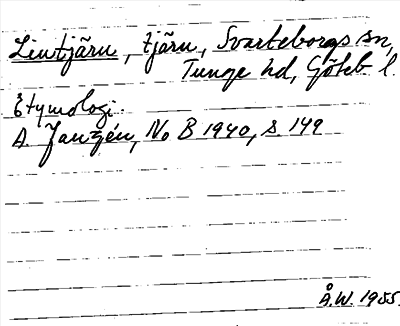 Lintjärn, tjärn, Svarteborgs sn,
Tunge hd, Göteb l.
Etymologi:
A. Janzén, No B 1940, s 149
Å.W. 1955.